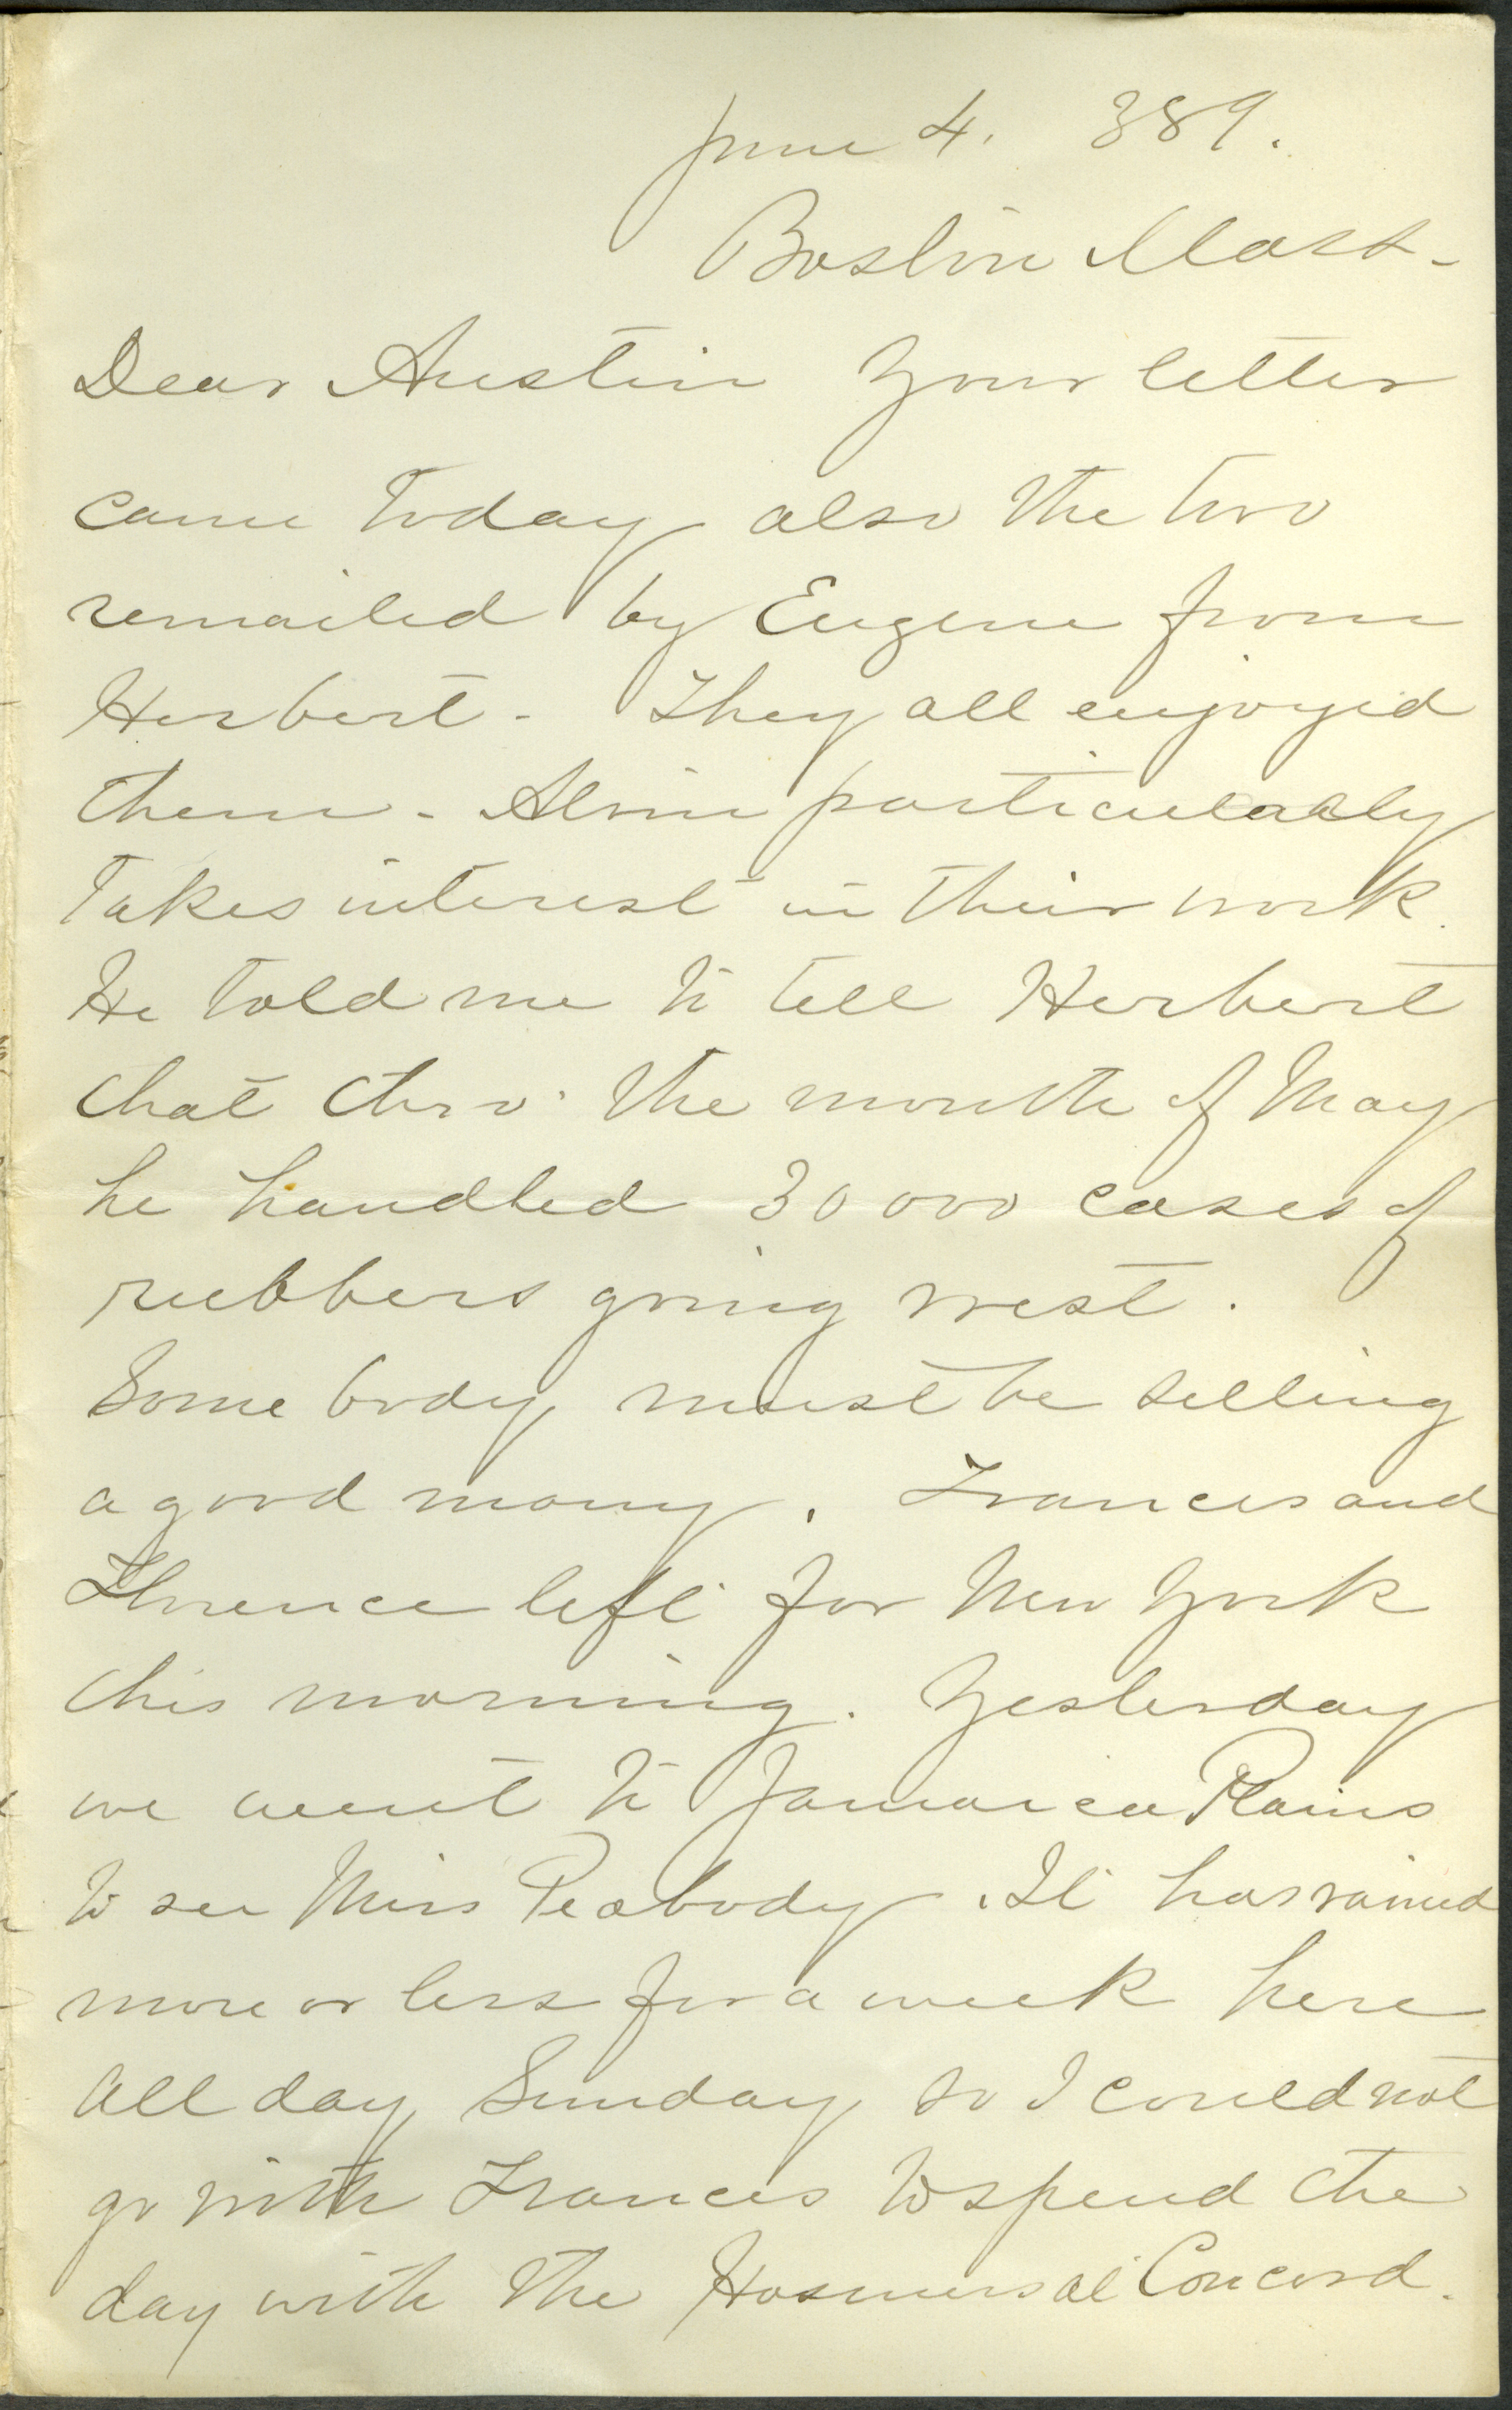 June 4. 389.
Boston Mass-
Dear Austin Your letter
came today also the two
remailed by Eugene from
Herbert - They all enjoyed
them - Alvin particularly
takes interest in their work.
He told me to tell Herbert
that thro' the month of May
he handled 30000 cases of
rubbers going west.
Some body must be selling
a good many. Frances and
Florence left for New York
this morning. Yesterday
we went to Jamaica Plains
to see Miss Peabody. It has rained
more or less for a week here
all day Sunday so I could not
go with Frances to spend the
day with the Hosmers at Concord.